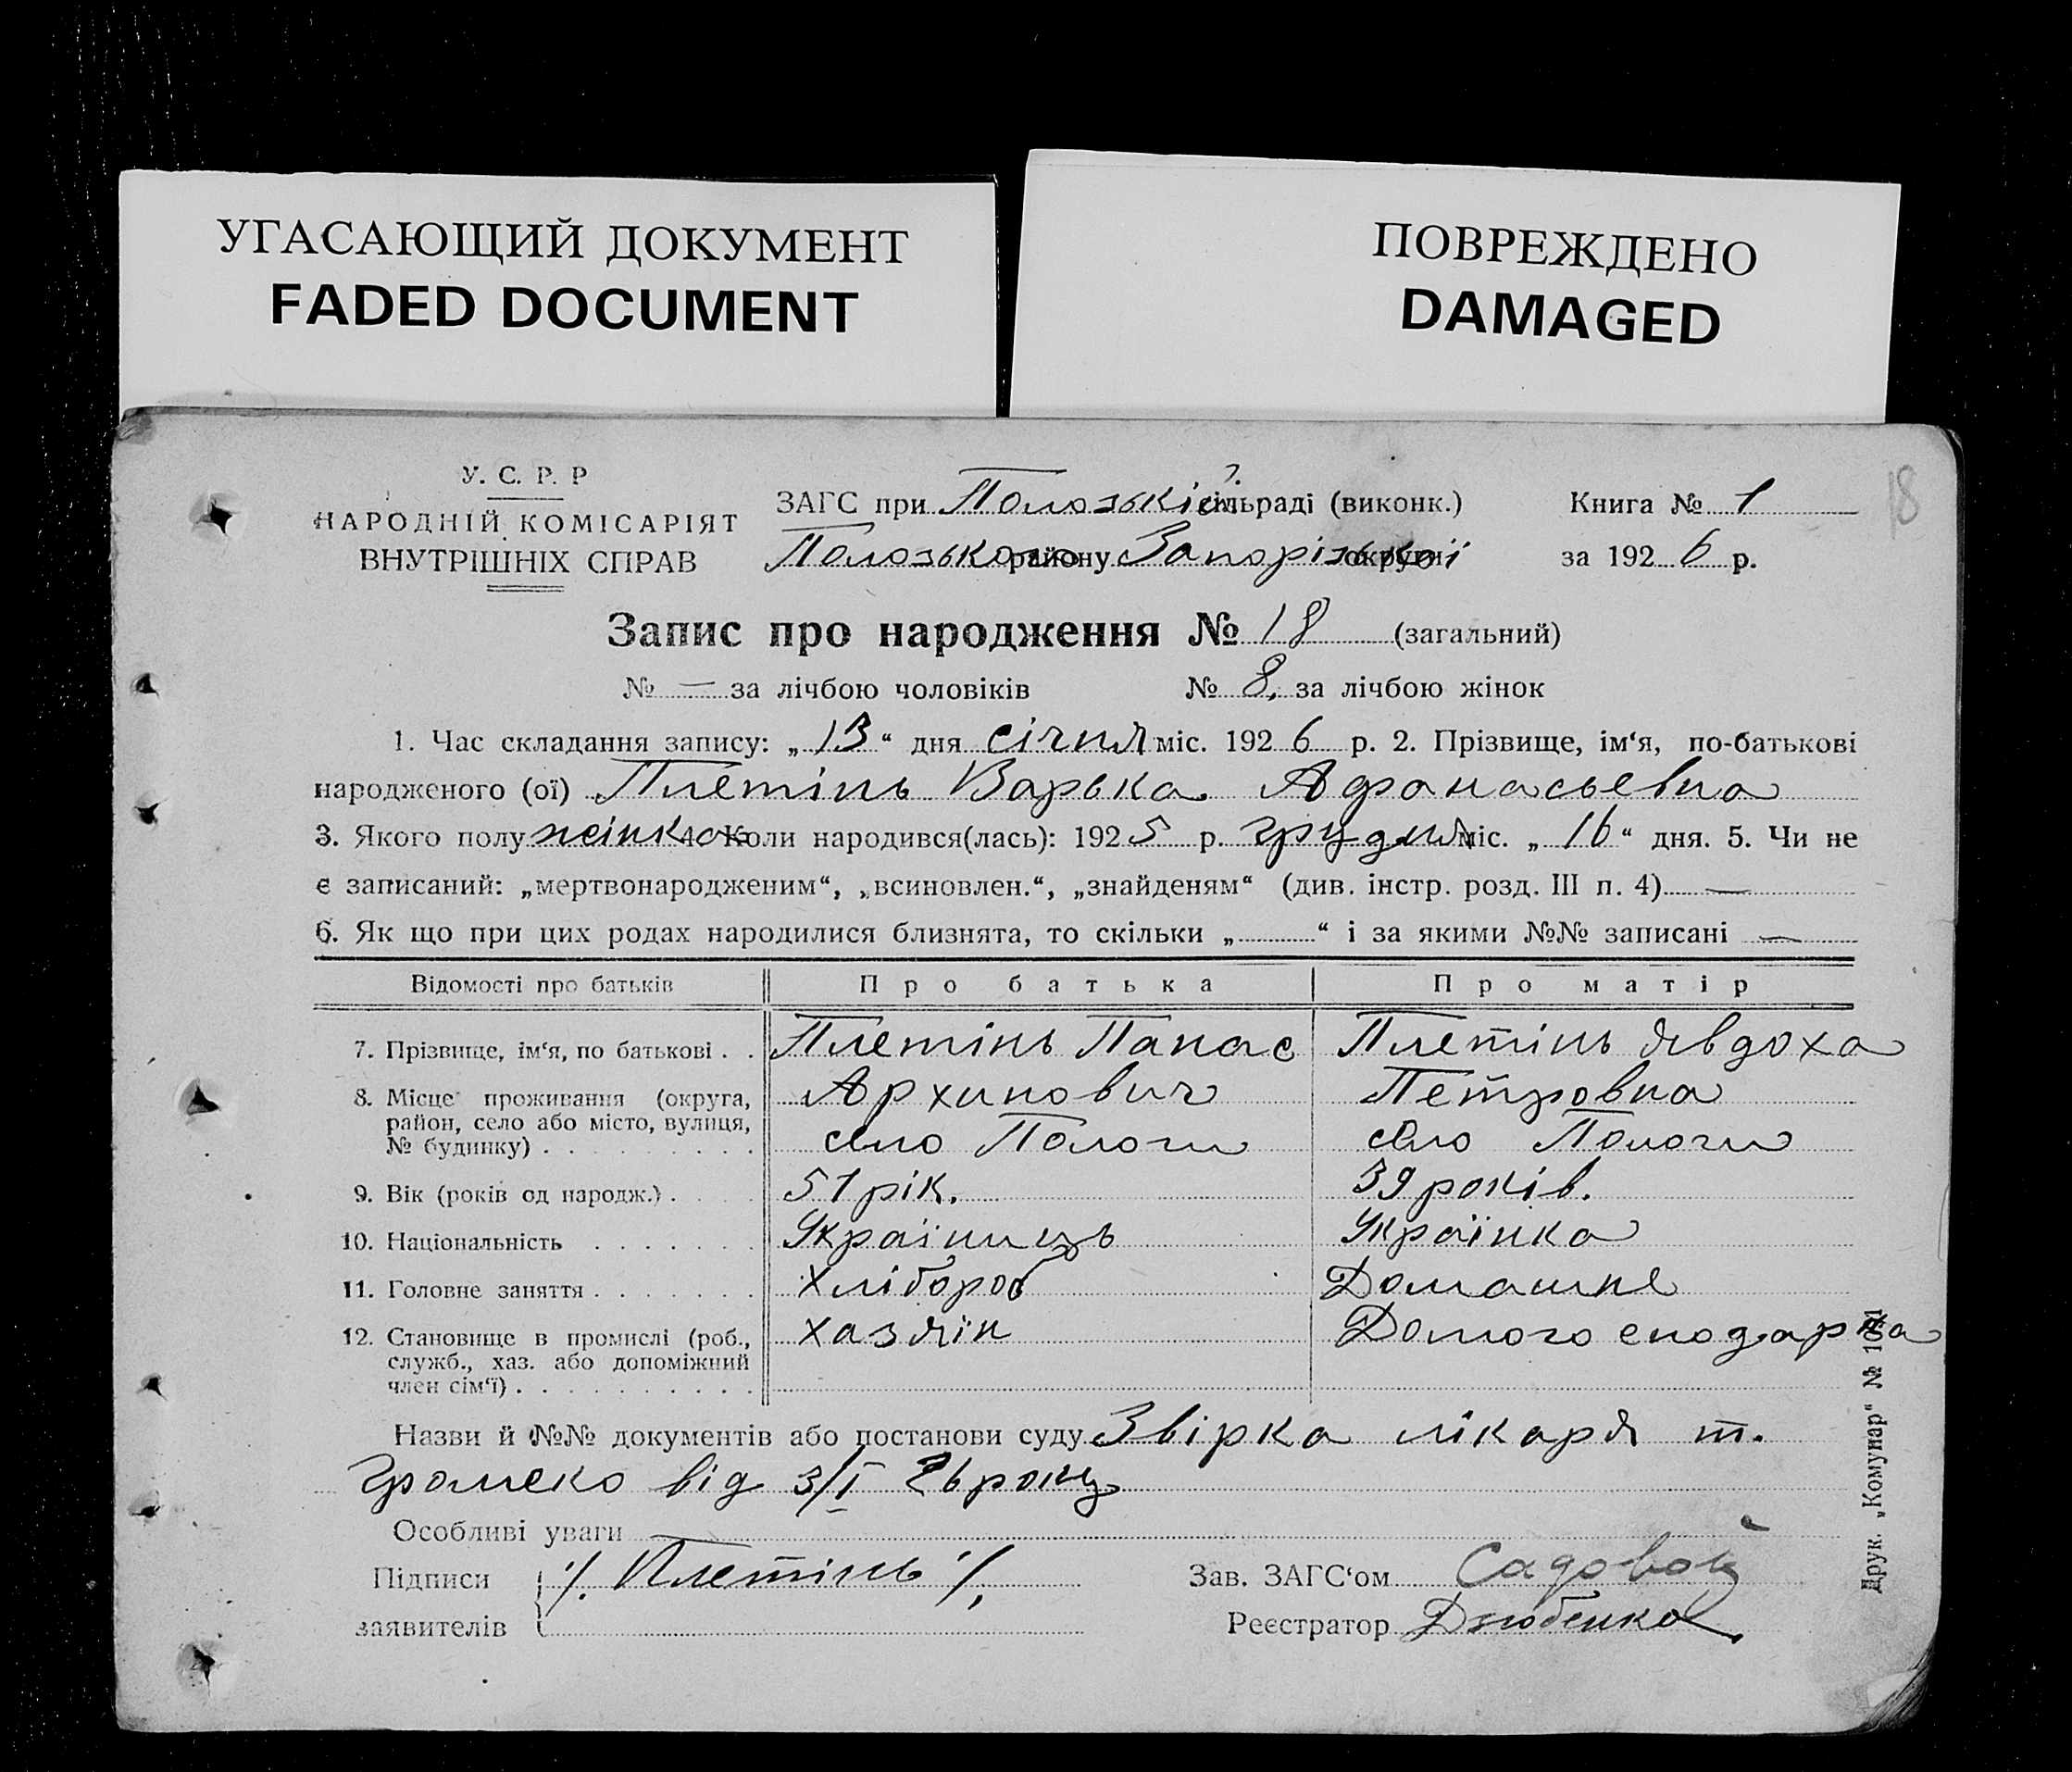 УГАСАЮЩИЙ ДОКУМЕНТ
FADED DOCUMENT
ПОВРЕЖДЕНО
DAMAGED
18
У. С. Р. Р
НАРОДНІЙ КОМІСАРІЯТ
ВНУТРІШНІХ СПРАВ
ЗАГС при Полозькій сільраді (виконк.)
Полозького району Запорізької округи
Книга № 1
за 1926 р.
Запис про народження № 18 (загальний)
№ — за лічбою чоловіків № 8. за лічбою жінок
1. Час складання запису: „13“ дня січня міс. 1926 р. 2. Прізвище, ім‘я, по-батькові
народженого (ої) Плетінь Варька Афонасьевна
3. Якого полу жінка 4. Коли народився(лась): 1925 р. грудня міс. „16“ дня. 5. Чи не
є записаний: „мертвонародженим“, „всиновлен.“, „знайденям“ (див. інстр. розд. III п. 4) —
6. Як що при цих родах народилися близнята, то скільки „ “ і за якими №№ записані —
Відомості про батьків Про батька Про матір
7. Прізвище, ім‘я, по батькові . . Плетінь Панас Плетінь Явдоха
Архипович Петровна
8. Місце проживання (округа,
район, село або місто, вулиця,
№ будинку) . . . . . . . . . село Пологи село Пологи
9. Вік (років од народж.) . . . . 51 рік. 39 років.
10. Національність . . . . . . . Українець Українка
11. Головне заняття . . . . . . . Хлібороб Домашнє
12. Становище в промислі (роб.,
служб., хаз. або допоміжний
член сім‘ї) . . . . . . . . . . Хазяїн
Назви й №№ документів або постанови суду Звірка лікаря т.
Громеко від 3/I 26 року
Особливі уваги —
Підписи
заявителів
/. Плетінь /.
Зав. ЗАГС‘ом Садовой
Реєстратор Дзюбенко
Друк. „Комунар“ №